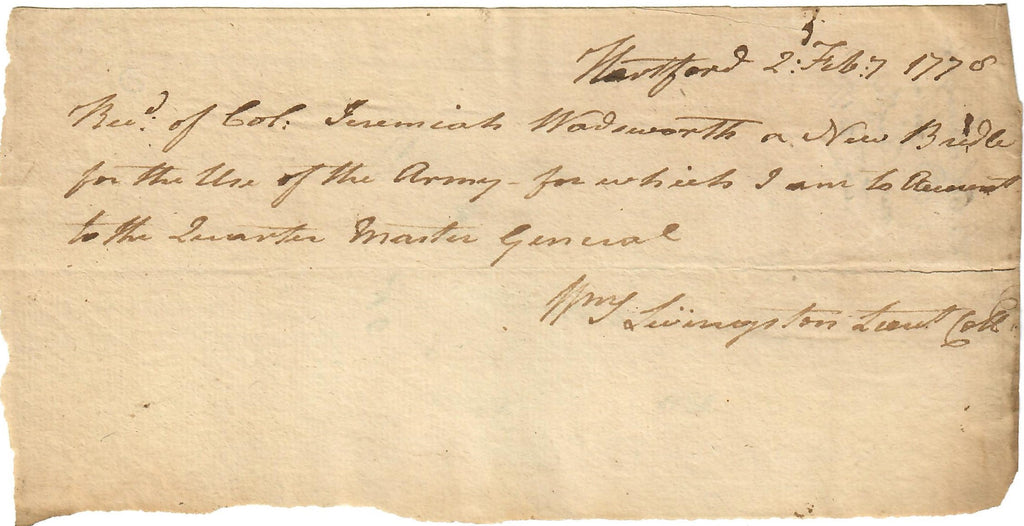 Hartford 2: Feb:y 1778
Rec.d of Col: Jeremiah Wadsworth a New Bridle
for the Use of the Army - for which I am to Account
to the Quarter Master General
Wm S Livingston Lieut Coll